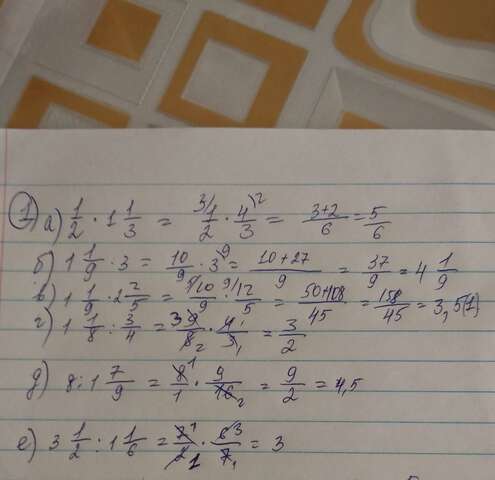 1) а) 1/2 · 1 1/3 = 3) 1/2 · 4/3 )2 = 3+2/6 = 5/6
б) 1 1/9 · 3 = 10/9 · 3 )9 = 10+27/9 = 37/9 = 4 1/9
в) 1 1/9 · 2 2/5 = 5) 10/9 · 9) 12/5 = 50+108/45 = 158/45 = 3,5(1)
г) 1 1/8 : 3/4 = 3 9/8 2 · 4 1/3 1 = 3/2
д) 8 : 1 7/9 = 8 1/1 · 9/16 2 = 9/2 = 4,5
е) 3 1/2 : 1 1/6 = 7 1/2 1 · 6 3/7 1 = 3